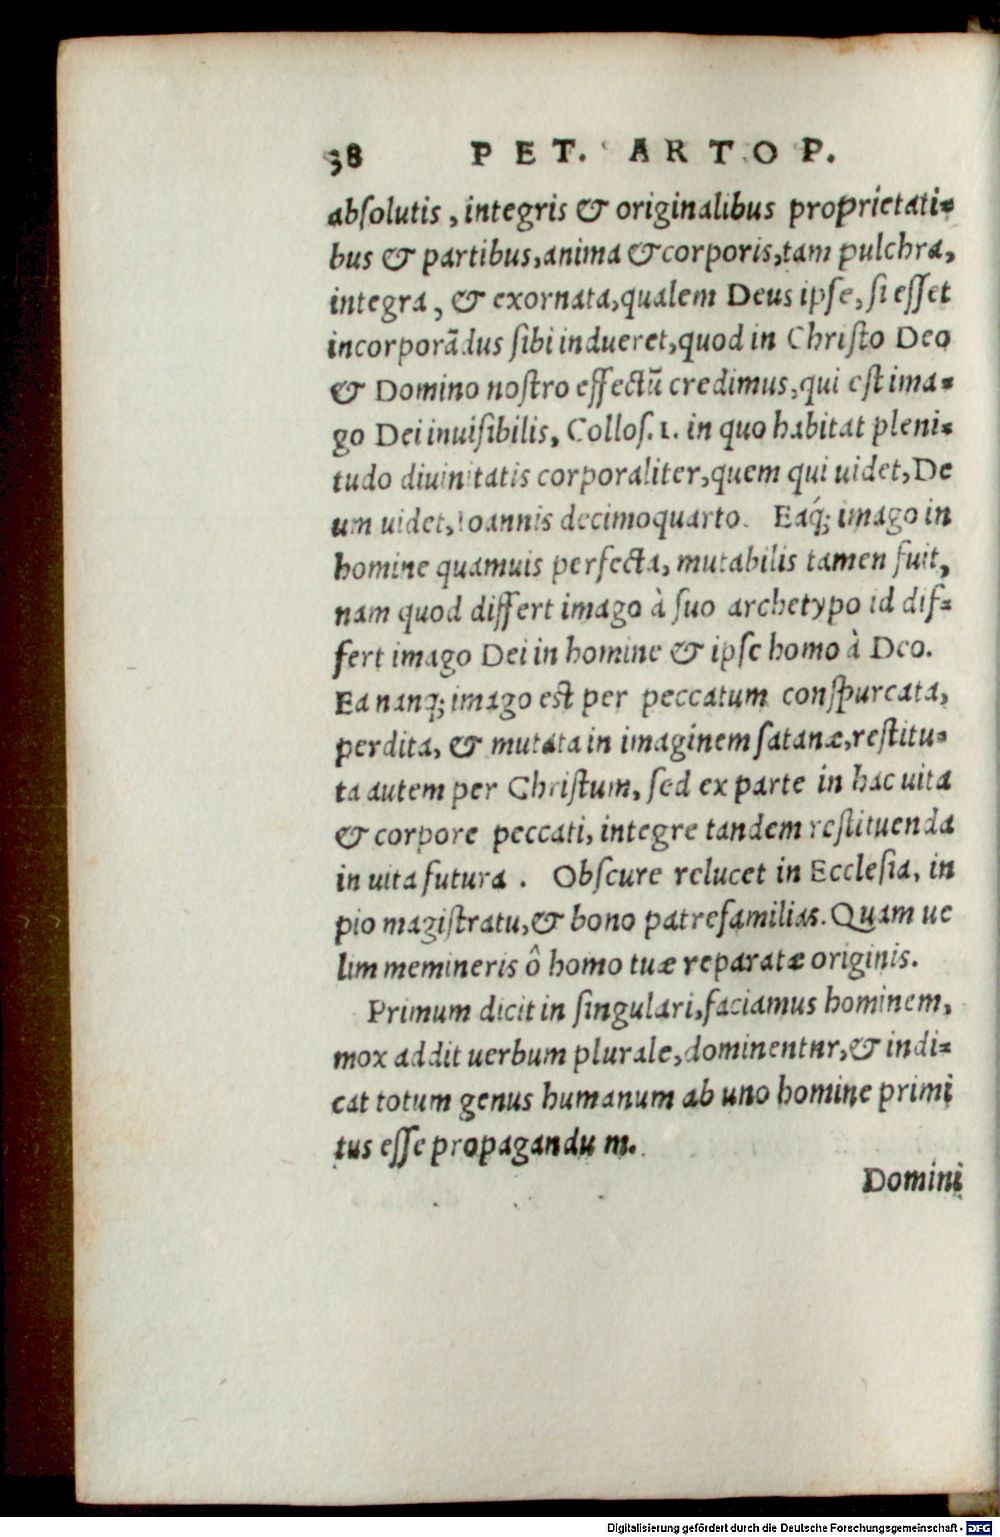 38 PET. ARTOP.
absolutis, integris & originalibus proprietati=
bus & partibus, anima & corporis, tam pulchra,
integra, & exornata, qualem Deus ipse, si esset
incorporãdus sibi indueret, quod in Christo Deo
& Domino nostro effectũ credimus, qui est ima=
go Dei inuisibilis, Collos. 1. in quo habitat pleni=
tudo diuinitatis corporaliter, quem qui uidet, De
um uidet, Ioannis decimoquarto. Eaq́; imago in
homine quamuis perfecta, mutabilis tamen fuit,
nam quod differt imago à suo archetypo id dif=
fert imago Dei in homine & ipse homo à Deo.
Ea nanq; imago est per peccatum conspurcata,
perdita, & mutata in imaginem satanæ, restitu=
ta autem per Christum, sed ex parte in hac uita
& corpore peccati, integre tandem restituenda
in uita futura. Obscure relucet in Ecclesia, in
pio magistratu, & bono patrefamilias. Quam ue
lim memineris ô homo tuæ reparatæ originis.
Primum dicit in singulari, faciamus hominem,
mox addit uerbum plurale, dominentnr, & indi=
cat totum genus humanum ab uno homine primi
tus esse propagandum.
Domini
Digitalisierung gefördert durch die Deutsche Forschungsgemeinschaft - DFG